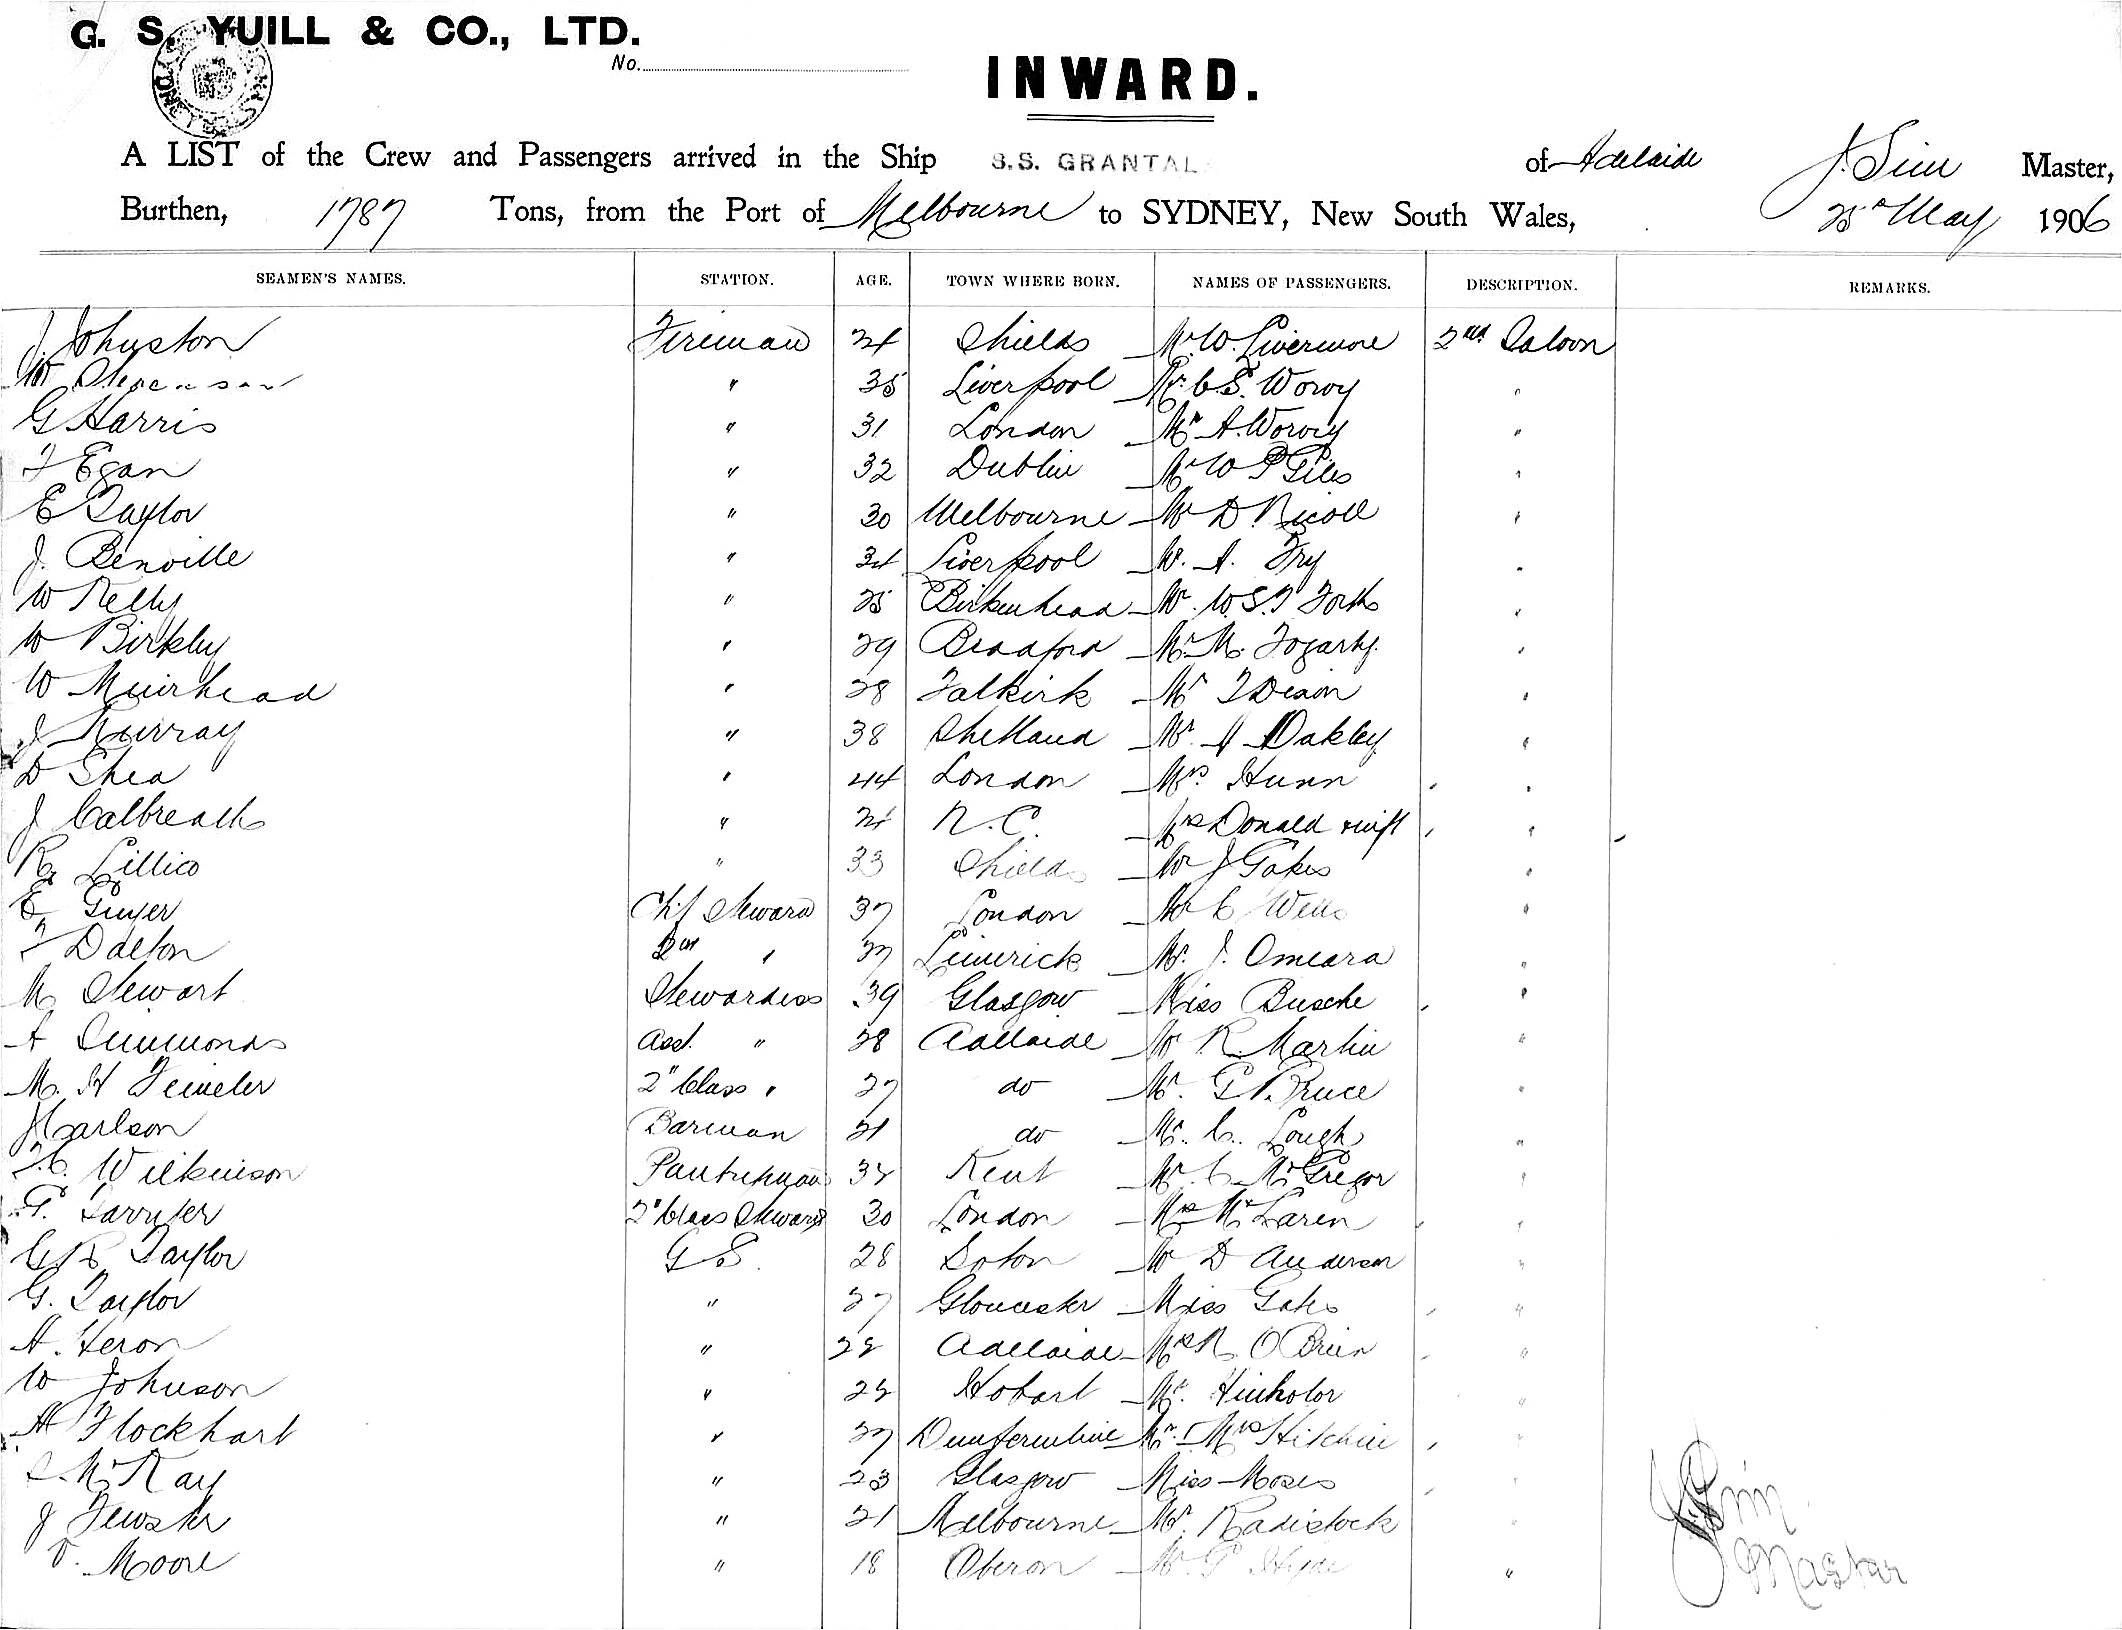 G. S. YUILL & CO., LTD.
No.
INWARD.
A LIST of the Crew and Passengers arrived in the Ship S.S. GRANTAL of Adelaide J. Sim Master,
Burthen, 1787 Tons, from the Port of Melbourne to SYDNEY, New South Wales, 25th May 1906
SEAMEN'S NAMES. STATION. AGE. TOWN WHERE BORN. NAMES OF PASSENGERS. DESCRIPTION. REMARKS.
J Johnston Fireman 24 Shields Mr W. Livermore 2nd Saloon
W Stevenson " 35 Liverpool Mr. C.S. Worvy "
G Harris " 31 London Mr A. Worvy "
T Egan " 32 Dublin Mr W P Giles "
E Taylor " 30 Melbourne Mr D. Nicoll "
J. Benville " 34 Liverpool Mr. A. Fry "
W Kelly " 25 Birkenhead Mr. W.S.T Forth "
W Birkby " 29 Bradford Mr. M. Fogarty. "
W Muirhead " 28 Falkirk Mr T Dixon "
J Murray " 38 Shetland Mr. H Oakley "
D Shea " 44 London Mrs Hunn "
J Calbreath " 24 N.C. Mrs Donald & inft "
R Lillico " 33 Shields Mr J Gakes "
E Guyer Chf Steward 37 London Mr C Wells "
T Dalton 2nd " 37 Limerick Mr. J. Omeara "
M Stewart Stewardess 39 Glasgow Miss Busche "
A Simmonds Asst. " 28 Adelaide Mr R. Martin "
M. H Femeler 2" Class " 27 do Mr. G N. Bruce "
J Carlson Barman 21 do Mr. C. Lough "
Wilkinson Pantryman 32 Kent Mr. C McGregor "
G. 2" Class Steward 30 London Mrs McLaren "
C R Taylor G S. 28 Soton Mr D Anderson "
G. Taylor " 27 Gloucester Miss Gakes "
A. Heron " 22 Adelaide Mrs N O'Brien "
W Johnson " 22 Hobart Mr. "
A Flockhart " 27 Dunfermline Mr. Mrs Hitchin "
McKay " 23 Glasgow Miss Moses "
J Fewster " 21 Melbourne Mr. Radistock "
Moore " 18 Oberon Mr G Hyde "
J Sim
Master